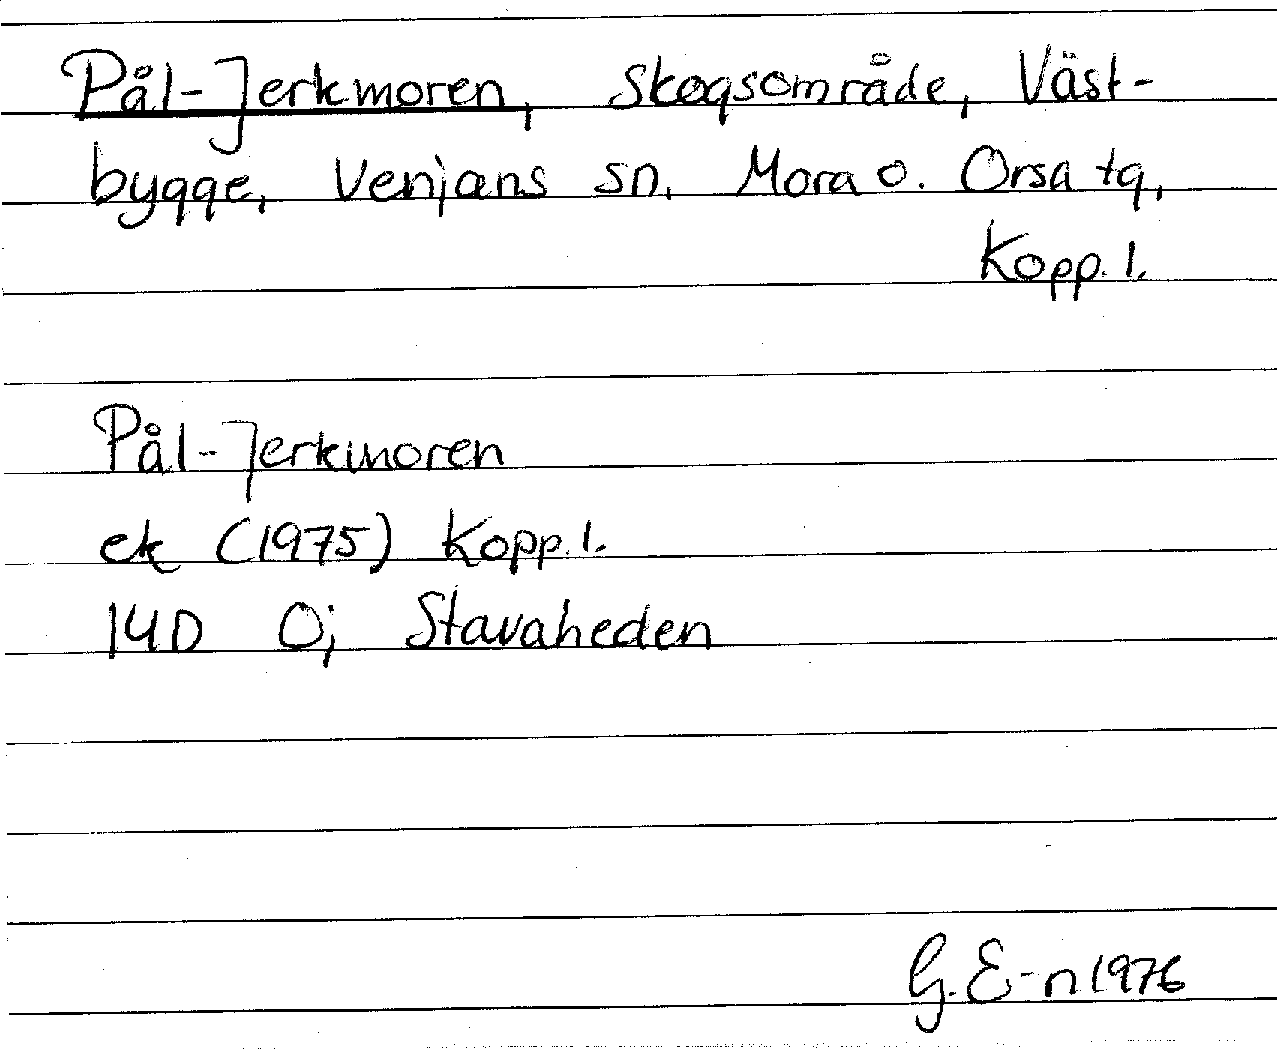 Pål-Jerkmoren, skogsområde, Väst-
bygge, Venjans sn, Mora o. Orsa tg,
Kopp. l.
Pål-Jerkmoren
ek (1975) Kopp. l.
14D Oj Stavaheden
G. E-n 1976